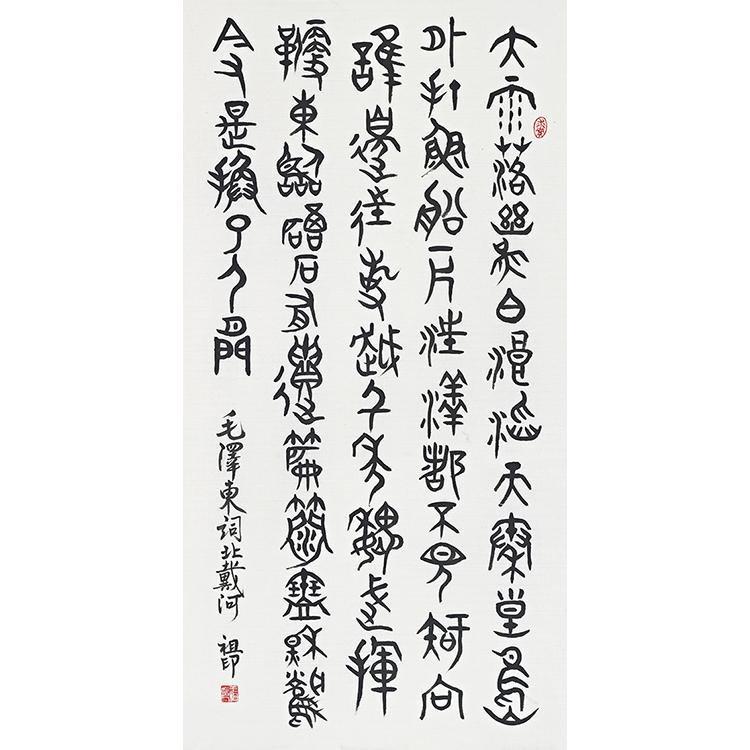 大雨落幽燕白浪滔天秦皇島
外打魚船一片汪洋都不見知向
誰邊往事越千年魏武揮
鞭東臨碣石有遺篇蕭瑟秋風
今又是換了人間
毛澤東詞北戴河 祖印